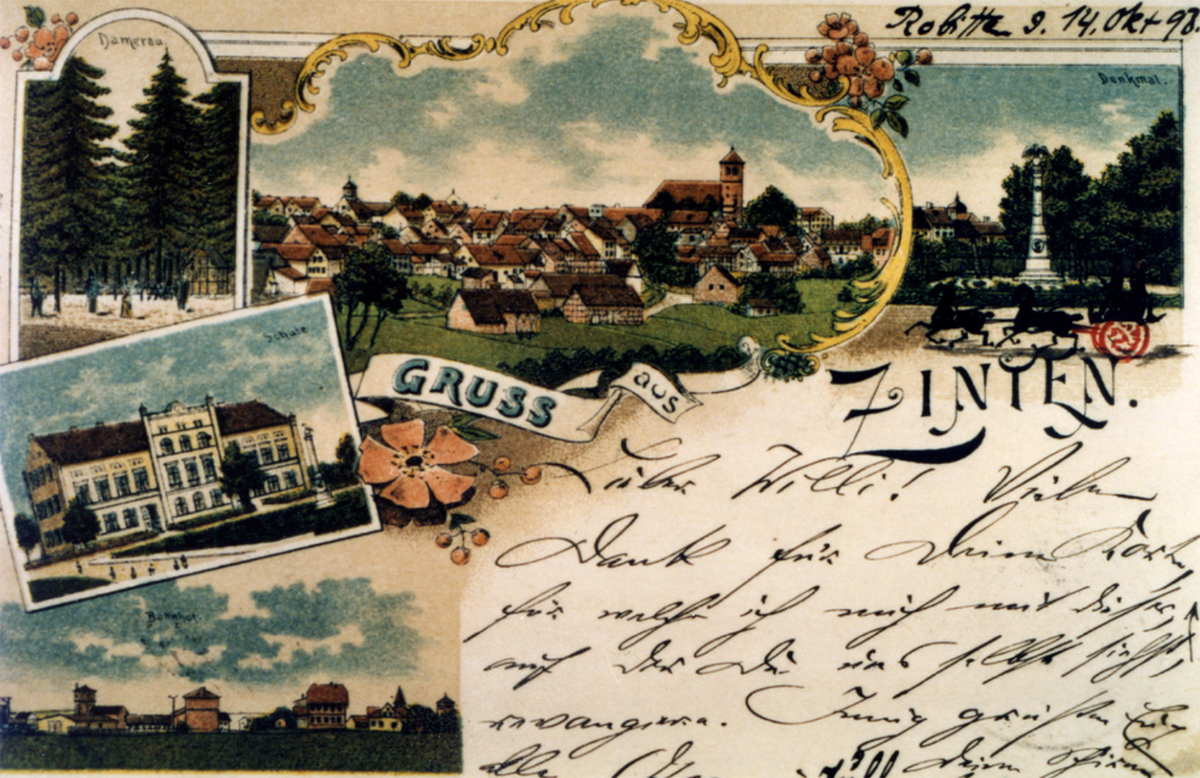 Robitten d. 14. Okt 98.
Damerau.
Denkmal.
Schule
GRUSS aus ZINTEN.
Bahnhof.
Lieber Willi! Vielen
Dank für Deine Karte
für welche ich mich mit dieser,
auf der Du uns selbst siehst,
revangiere. Innig grüßen Euch
alle
Deine